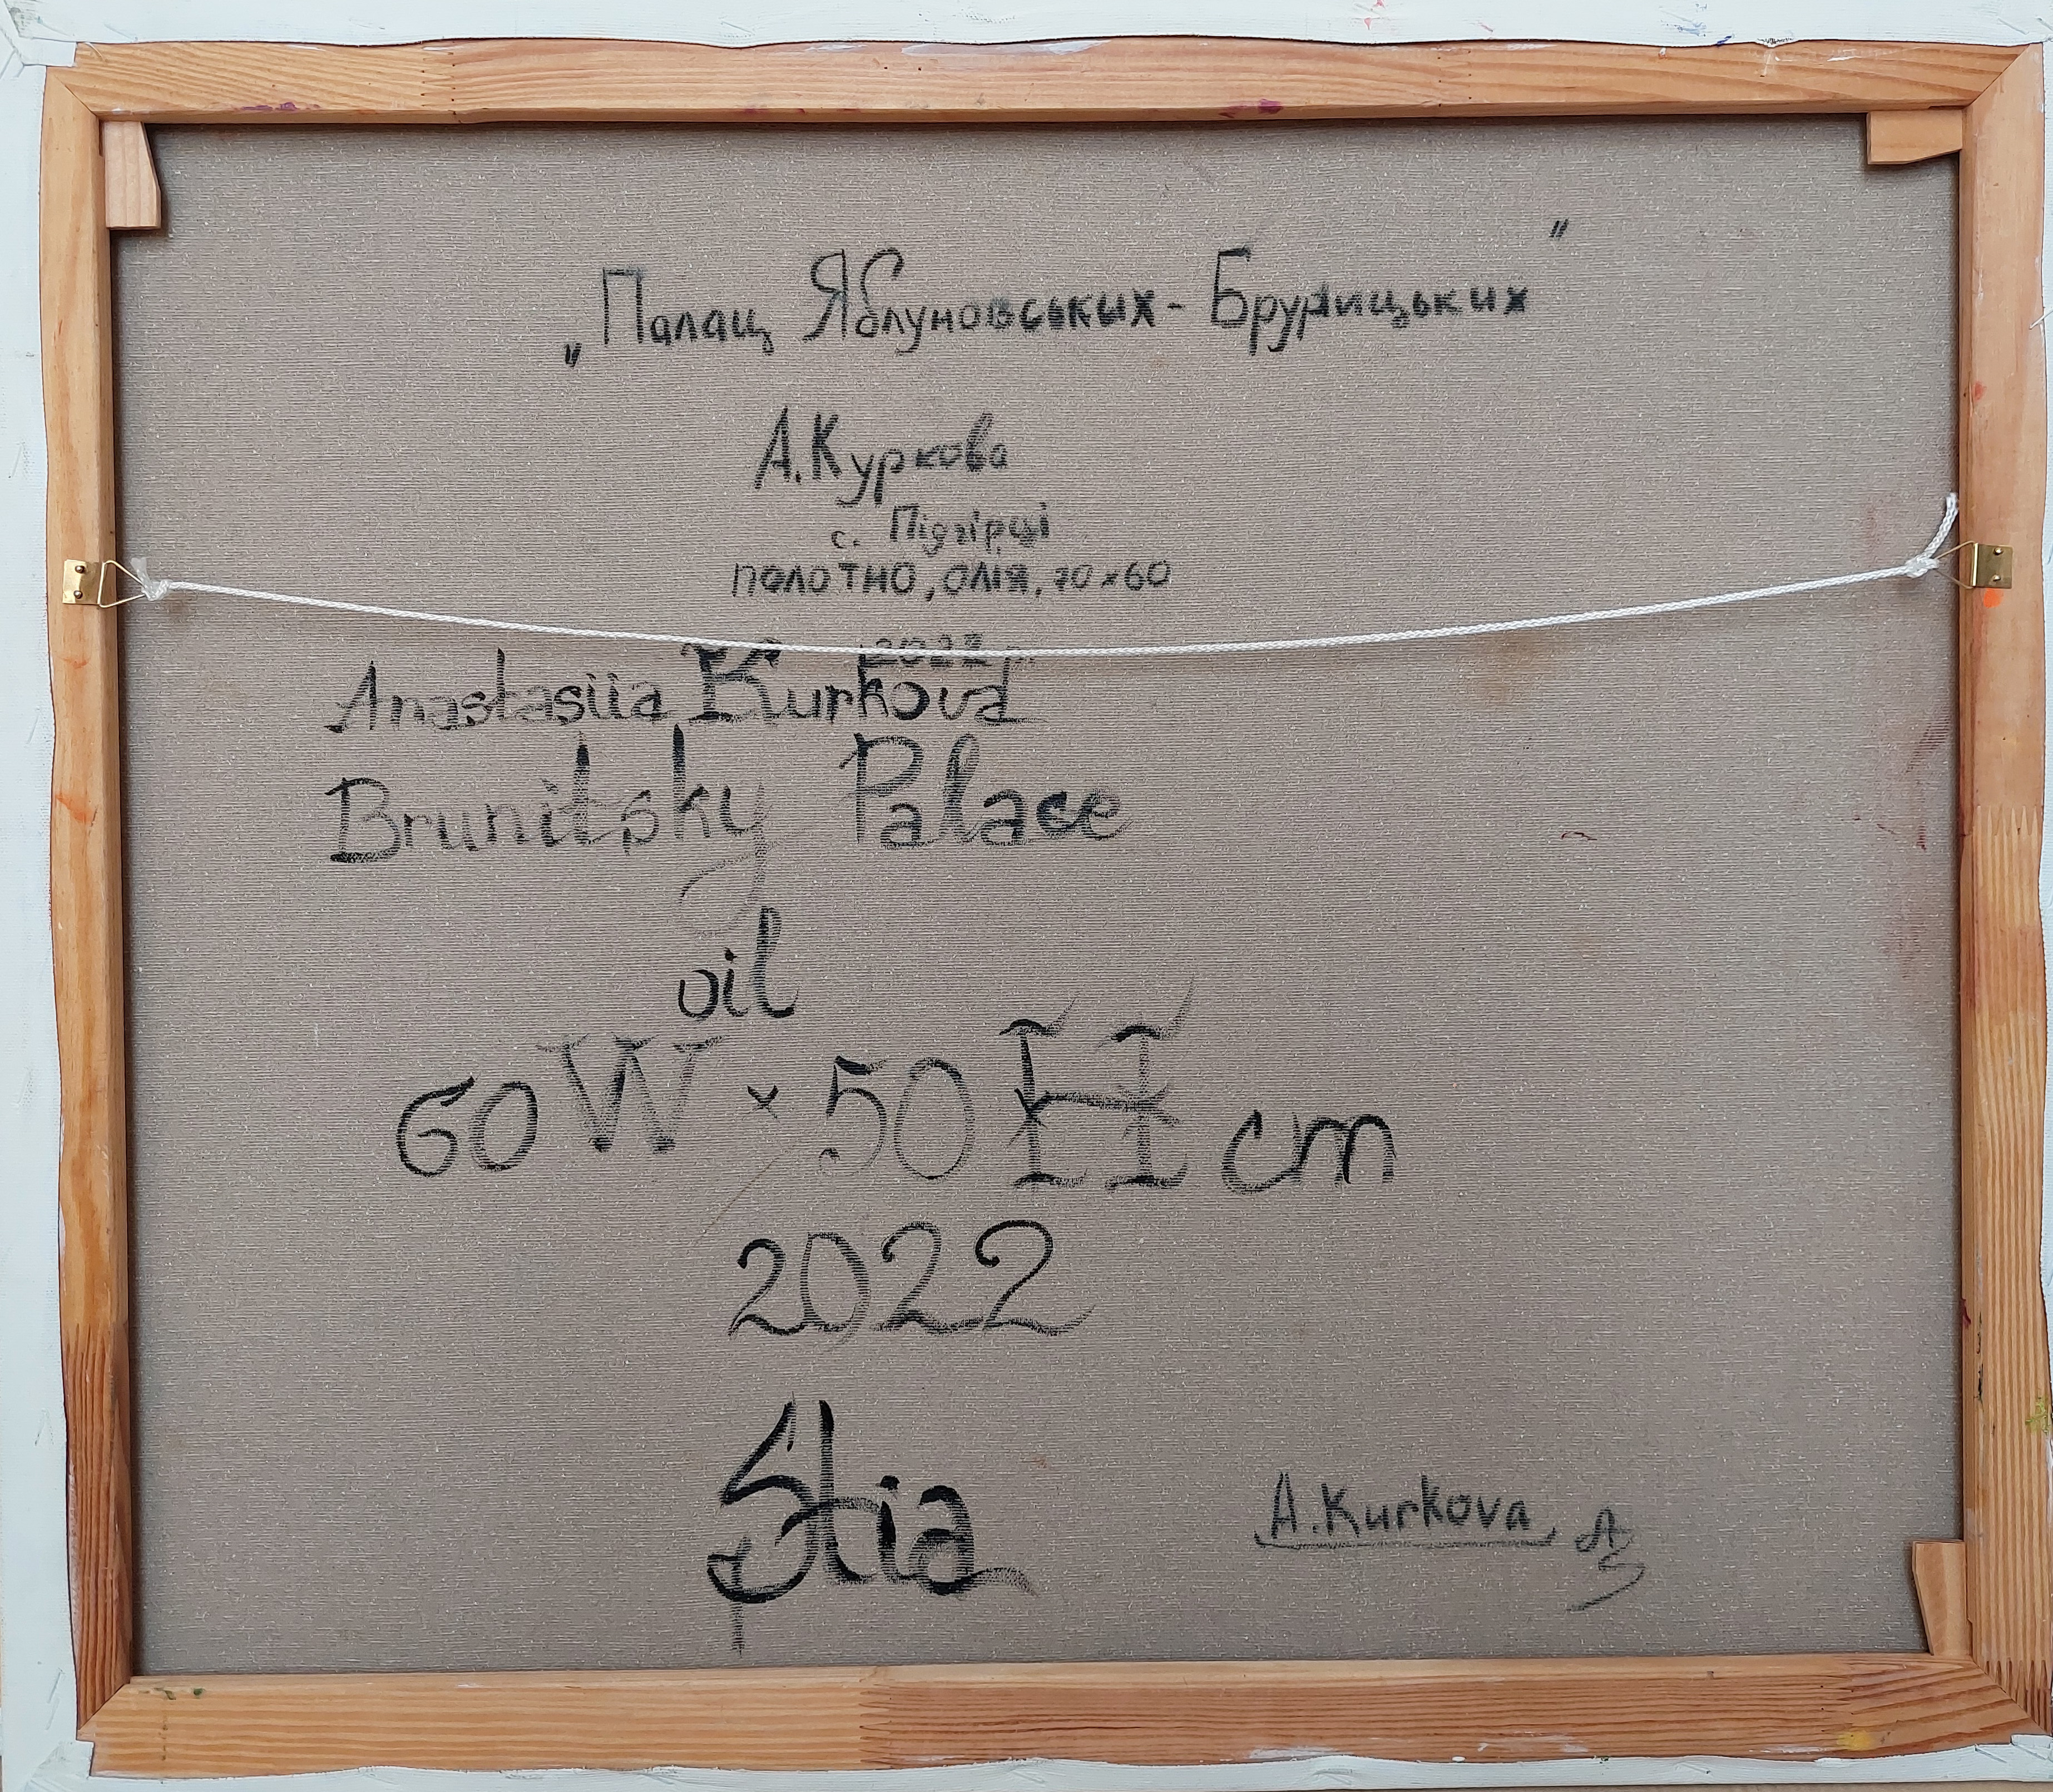 „Палац Яблуновських-Бруницьких"
А.Куркова
с. Підгірці
ПОЛОТНО, ОЛІЯ, 70×60
2022 р.
Anastasiia Kurkova
Brunitsky Palace
oil
60W × 50H cm
2022
Stia
A.Kurkova